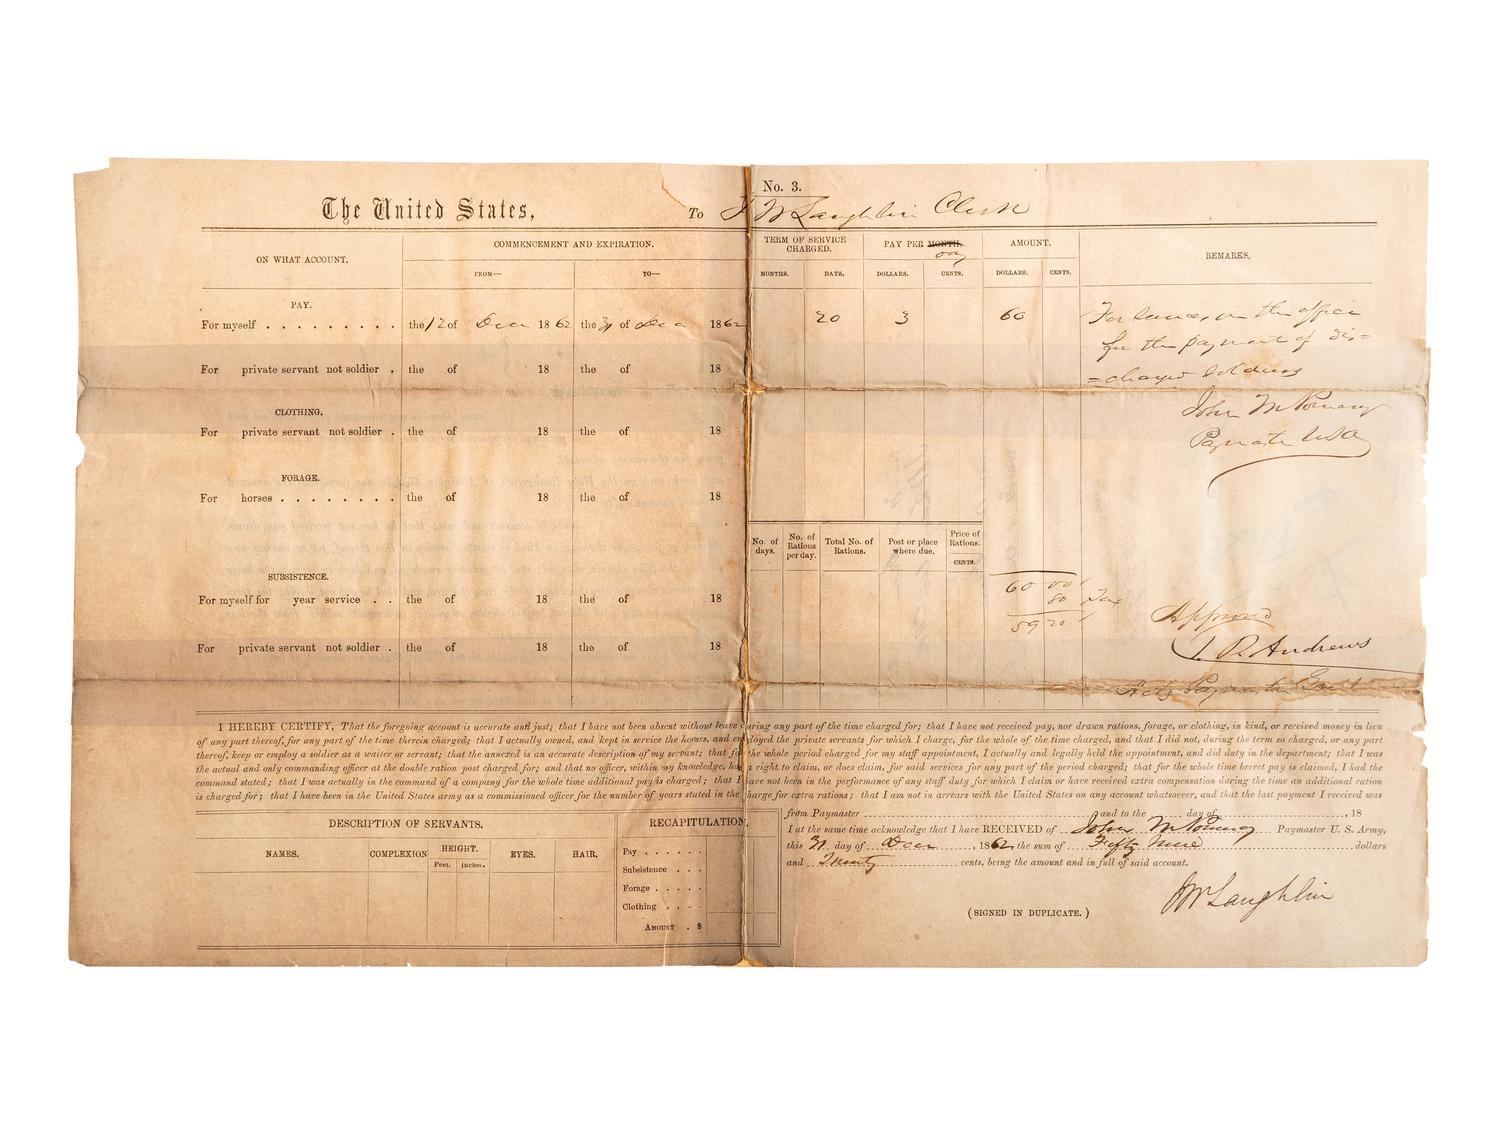 No. 3.
The United States, To J McLaughlin Clerk
ON WHAT ACCOUNT. COMMENCEMENT AND EXPIRATION. TERM OF SERVICE CHARGED. PAY PER MONTH. day AMOUNT. REMARKS.
FROM— TO— MONTHS. DAYS. DOLLARS. CENTS. DOLLARS. CENTS.
PAY.
For myself . . . . . . . . . the 12 of Decr 1862 the 31 of Dec 1862 20 3 60
For services in the office
for the payment of dis=
=charged Soldiers
John M Pomeroy
Paymaster USA
For private servant not soldier . the of 18 the of 18
CLOTHING.
For private servant not soldier . the of 18 the of 18
FORAGE.
For horses . . . . . . . . the of 18 the of 18
No. of days. No. of Rations per day. Total No. of Rations. Post or place where due. Price of Rations. CENTS.
SUBSISTENCE.
For myself for year service . . the of 18 the of 18
60 00
80 Tax
59 20
For private servant not soldier . the of 18 the of 18
Approved
T. P. Andrews
Actg Paymaster Genl
I HEREBY CERTIFY, That the foregoing account is accurate and just; that I have not been absent without leave during any part of the time charged for; that I have not received pay, nor drawn rations, forage, or clothing, in kind, or received money in lieu
of any part thereof, for any part of the time therein charged; that I actually owned, and kept in service the horses, and employed the private servants for which I charge, for the whole of the time charged, and that I did not, during the term so charged, or any part
thereof, keep or employ a soldier as a waiter or servant; that the annexed is an accurate description of my servant; that for the whole period charged for my staff appointment, I actually and legally held the appointment, and did duty in the department; that I was
the actual and only commanding officer at the double ration post charged for; and that no officer, within my knowledge, has a right to claim, or does claim, for said services for any part of the period charged; that for the whole time brevet pay is claimed, I had the
command stated; that I was actually in the command of a company for the whole time additional pay is charged; that I have not been in the performance of any staff duty for which I claim or have received extra compensation during the time an additional ration
is charged for; that I have been in the United States army as a commissioned officer for the number of years stated in the charge for extra rations; that I am not in arrears with the United States on any account whatsoever, and that the last payment I received was
from Paymaster and to the day of , 18
I at the same time acknowledge that I have RECEIVED of John M Pomeroy Paymaster U. S. Army,
this 31 day of Decr , 1862, the sum of Fifty Nine dollars
and Twenty cents, being the amount and in full of said account.
J McLaughlin
(SIGNED IN DUPLICATE.)
DESCRIPTION OF SERVANTS.
NAMES. COMPLEXION HEIGHT. Feet. Inches. EYES. HAIR.
RECAPITULATION.
Pay . . . . .
Subsistence . . .
Forage . . . . .
Clothing . . . .
AMOUNT . $